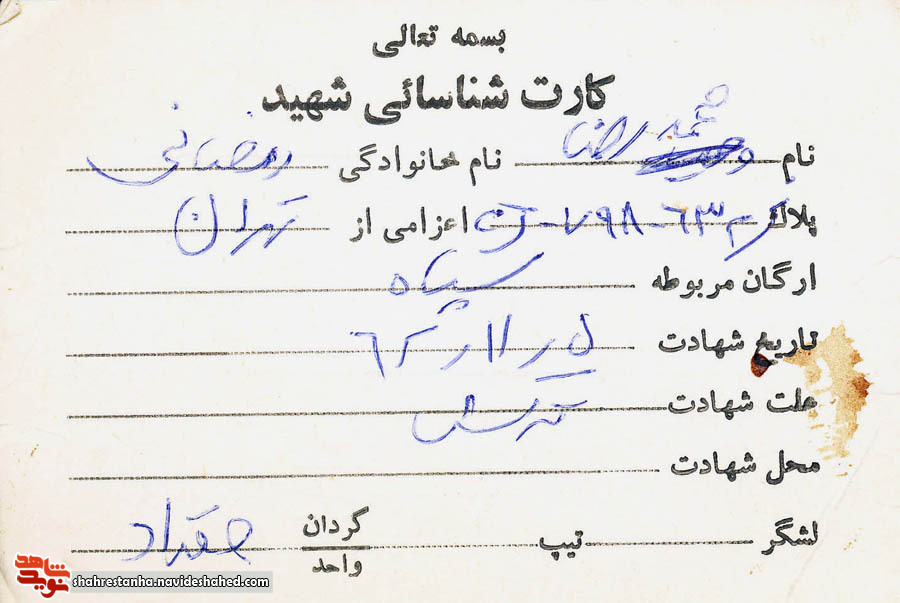 بسمه تعالی
کارت شناسائی شهید
نام محمدرضا نام خانوادگی رمضانی
پلاک اعزامی از تهران
ارگان مربوطه سپاه
تاریخ شهادت
علت شهادت ترکش
محل شهادت
لشگر تیپ گردان واحد مقداد
نوید شاهد
shahrestanha.navideshahed.com